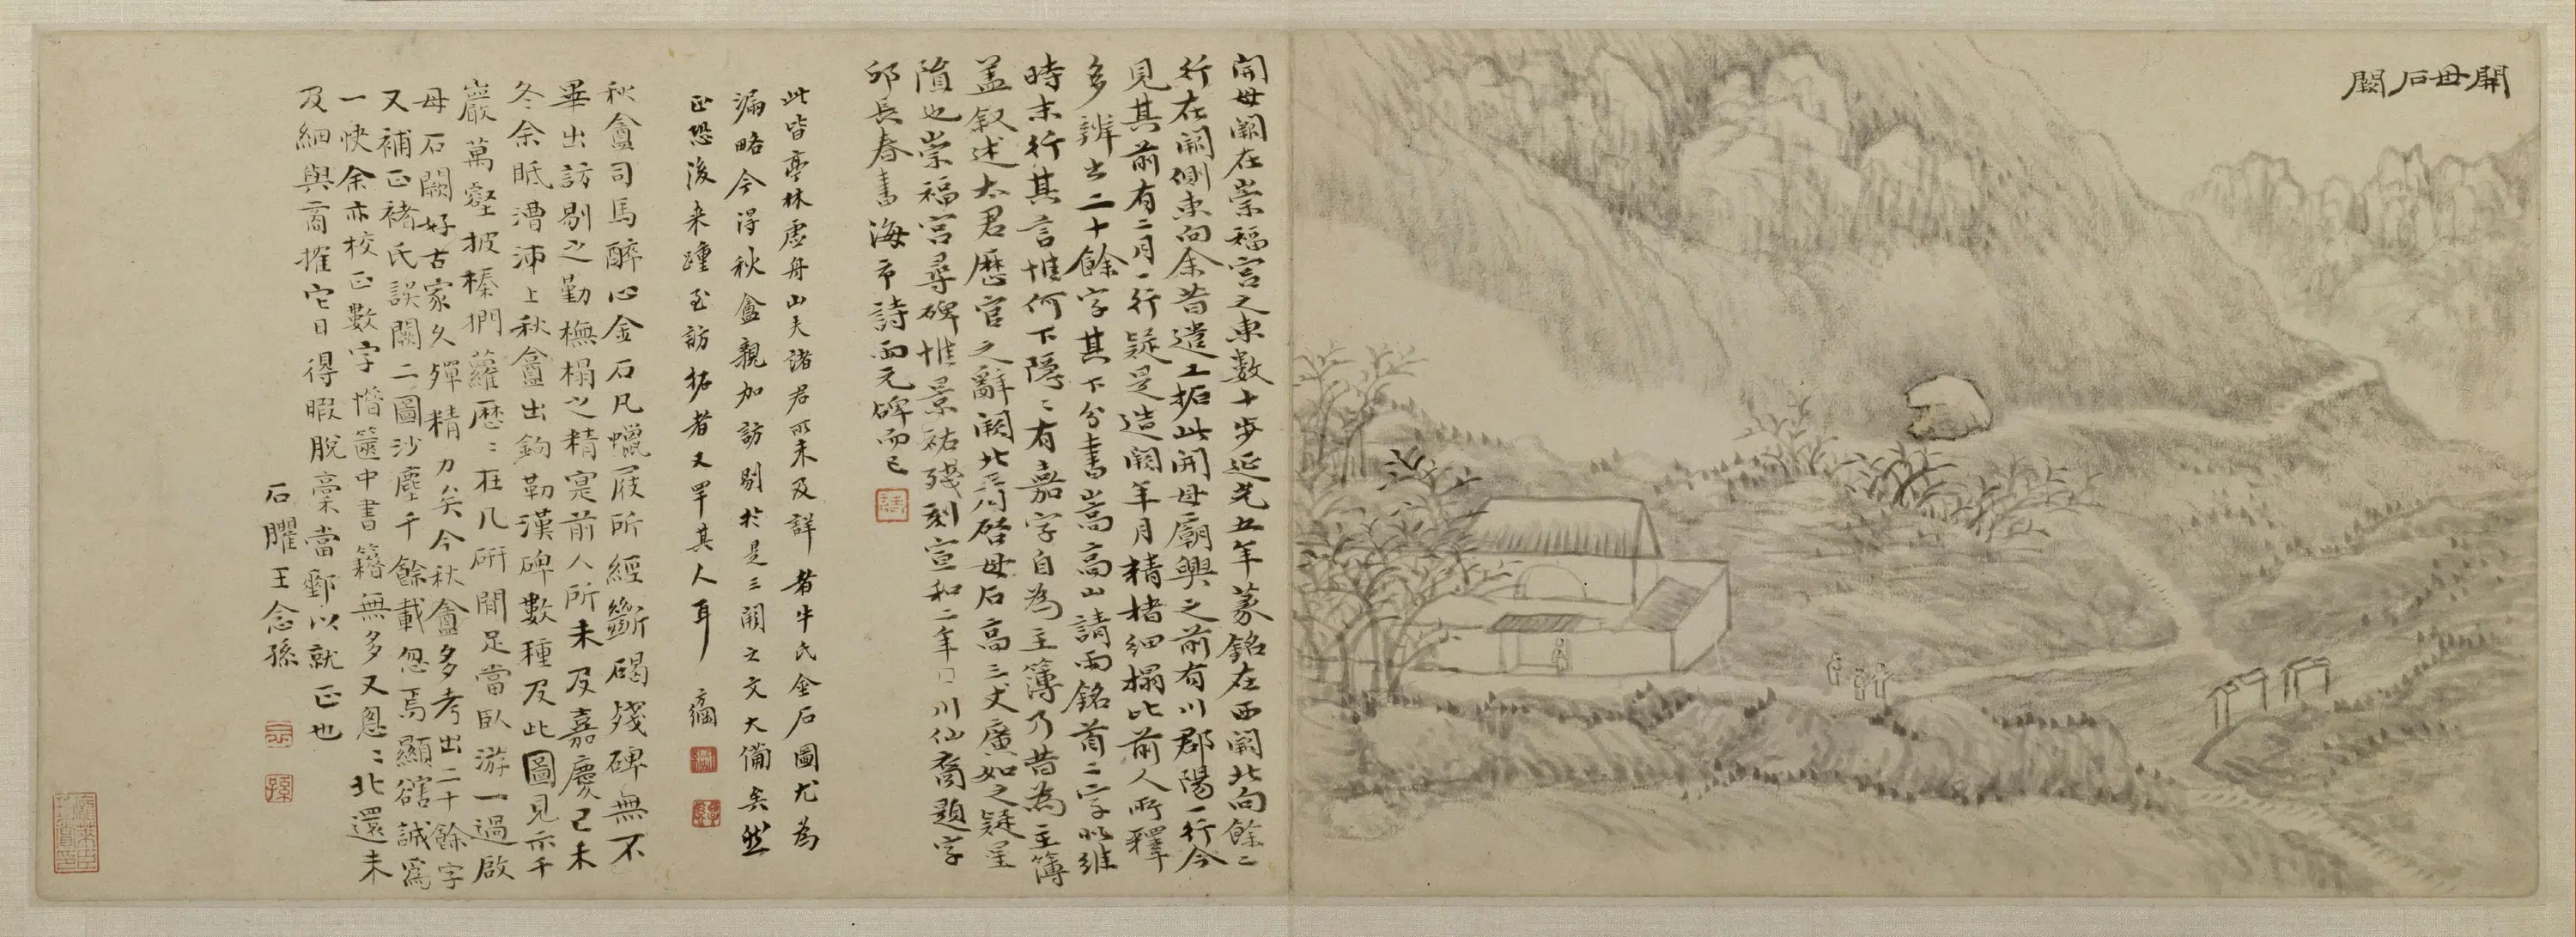 開母石闕
開母闕在崇福宮之東數十步延光五年篆銘在西闕北向餘二
行在闕側東向余昔遣工拓此開母廟興之前有川郡陽一行今
見其前有二月一行疑是造闕年月精楮細搨比前人所釋
多辨出二十餘字其下分書嵩高山請雨銘首二字似維
時末行其言惟何下隱〻有嘉字自為主簿乃昔為主簿
盖叙述太君歷官之辭闕北有啓母石高三丈廣如之疑星
隕也崇福宮尋碑惟景祐殘刻宣和二年□川仙裔題字
邱長春書海市詩而元碑而已
此皆亭林虛舟山夫諸君所未及詳者牛氏金石圖尤為
漏略今得秋盦親加訪剔於是三闕之文大備矣然
正恐後来踵至訪拓者又罕其人耳 方綱
秋盦司馬醉心金石凡蠟屐所經斷碣殘碑無不
畢出訪剔之勤橅搨之精寔前人所未及嘉慶己未
冬余眂漕沛上秋盦出鉤勒漢碑數種及此圖見示千
巖萬壑披榛捫蘿歷〻在几研閒足當臥游一過啟
母石闕好古家久殫精力矣今秋盦多考出二十餘字
又補正褚氏誤闕二圖沙塵千餘載忽焉顯豁誠為
一快余亦校正數字惜篋中書籍無多又悤〻北還未
及細與商搉它日得暇脫稾當郵以就正也
石臞王念孫